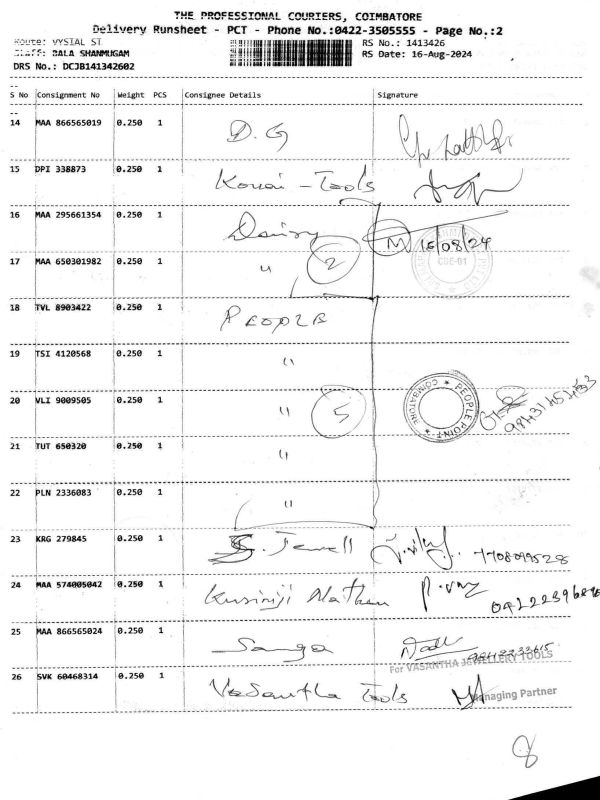 THE PROFESSIONAL COURIERS, COIMBATORE
Delivery Runsheet - PCT - Phone No.:0422-3505555 - Page No.:2
Route: VYSIAL ST RS No.: 1413426
Staff: BALA SHANMUGAM RS Date: 16-Aug-2024
DRS No.: DCJB141342602
S No Consignment No Weight PCS Consignee Details Signature
14 MAA 866565019 0.250 1 D.G
15 DPI 338873 0.250 1 Kovai - Tools
16 MAA 295661354 0.250 1 16/08/24
17 MAA 650301982 0.250 1 " 2 CBE-01
18 TVL 8903422 0.250 1 PEOPLE
19 TSI 4120568 0.250 1 "
20 VLI 9009505 0.250 1 " 5 PEOPLE POINT COIMBATORE
21 TUT 650320 0.250 1 "
22 PLN 2336083 0.250 1 "
23 KRG 279845 0.250 1 S. Jewell 7708099528
24 MAA 574005042 0.250 1
25 MAA 866565024 0.250 1 Sanga
For VASANTHA JEWELLERY TOOLS
26 SVK 60468314 0.250 1 Vasantha Tools Managing Partner
8